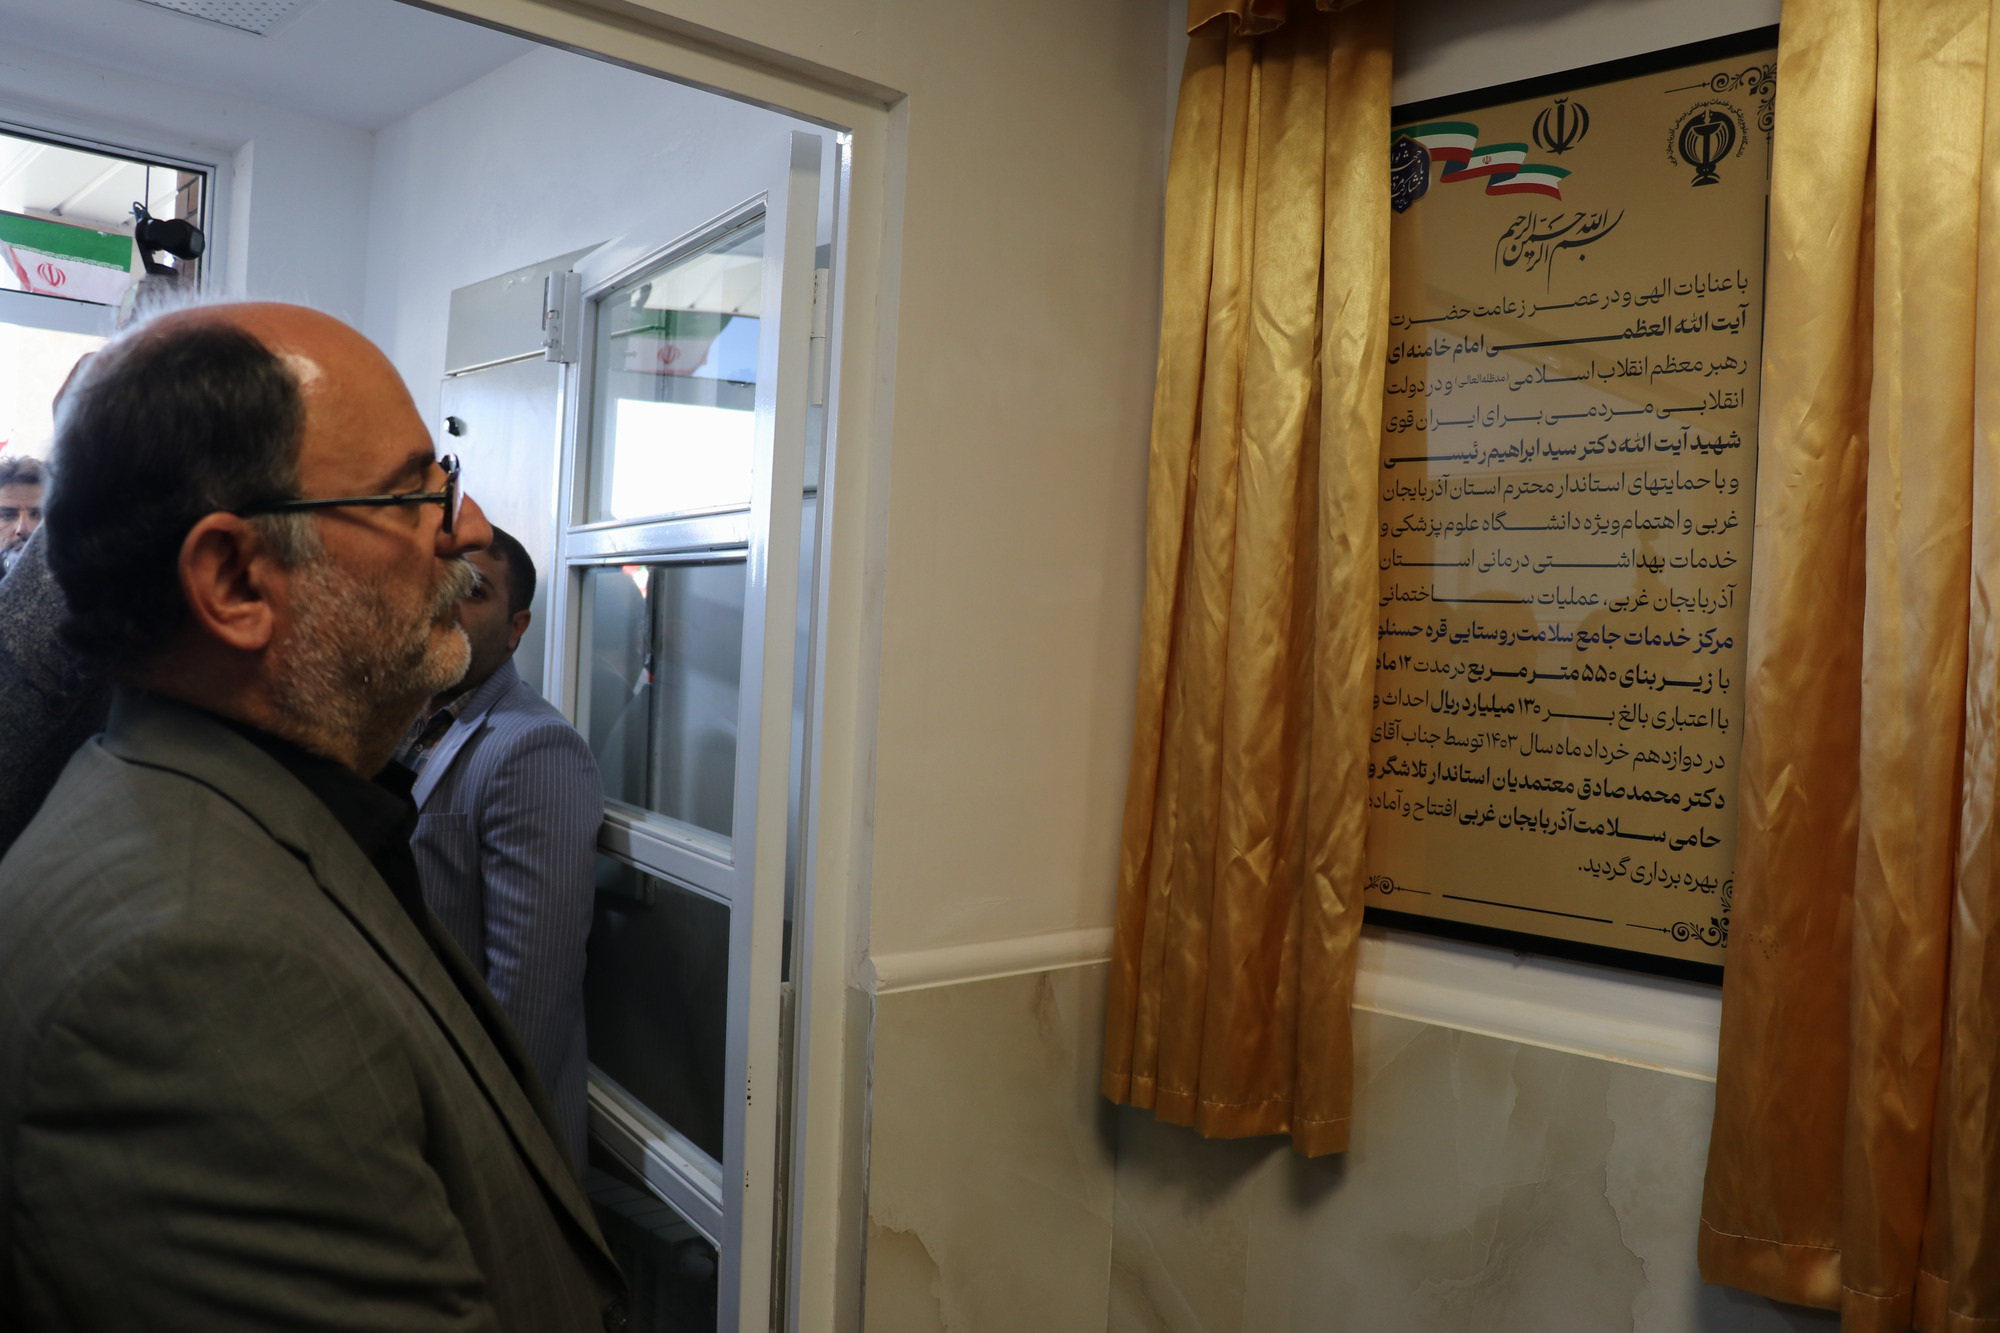 بسم الله الرحمن الرحیم
با عنایات الهی و در عصر زعامت حضرت
آیت الله العظمی امام خامنه ای
رهبر معظم انقلاب اسلامی (مدظله العالی) و در دولت
انقلابی مردمی برای ایران قوی
شهید آیت الله دکتر سید ابراهیم رئیسی
و با حمایتهای استاندار محترم استان آذربایجان
غربی و اهتمام ویژه دانشگاه علوم پزشکی و
خدمات بهداشتی درمانی استان
آذربایجان غربی، عملیات ساختمانی
مرکز خدمات جامع سلامت روستایی قره حسنلو
با زیر بنای ۵۵۰ متر مربع در مدت ۱۲ ماه
با اعتباری بالغ بر ۱۳۰ میلیارد ریال احداث و
در دوازدهم خرداد ماه سال ۱۴۰۳ توسط جناب آقای
دکتر محمدصادق معتمدیان استاندار تلاشگر و
حامی سلامت آذربایجان غربی افتتاح و آماده
بهره برداری گردید.